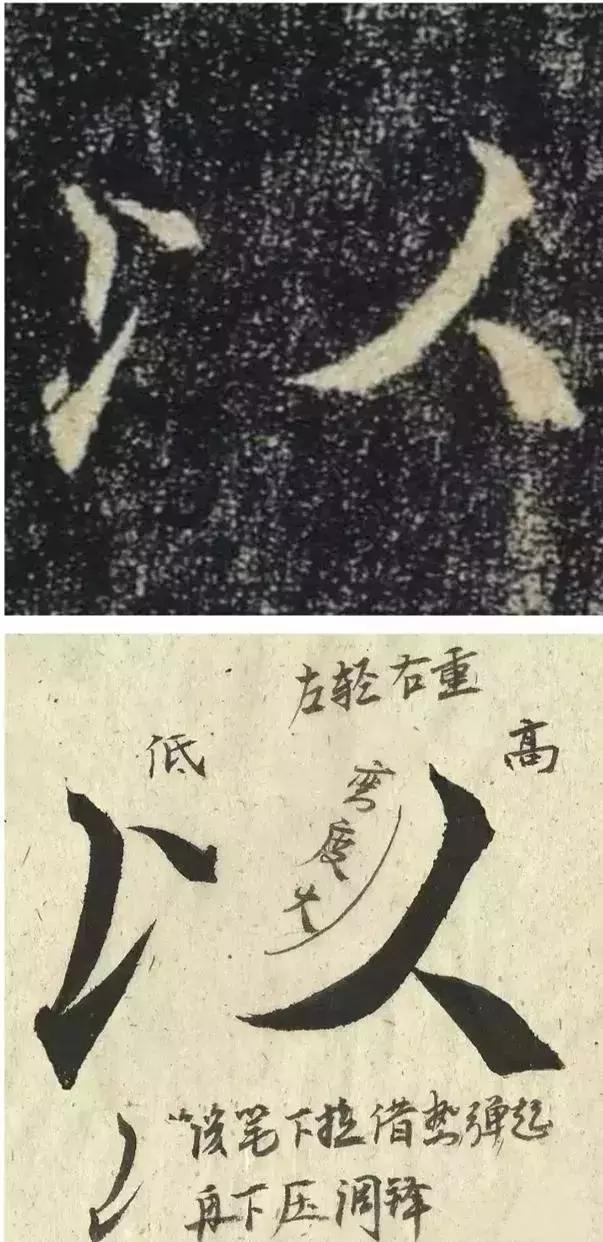 以
左轻右重
低
高
弯度大
以
"侧笔下拉借势弹起
再下压调锋